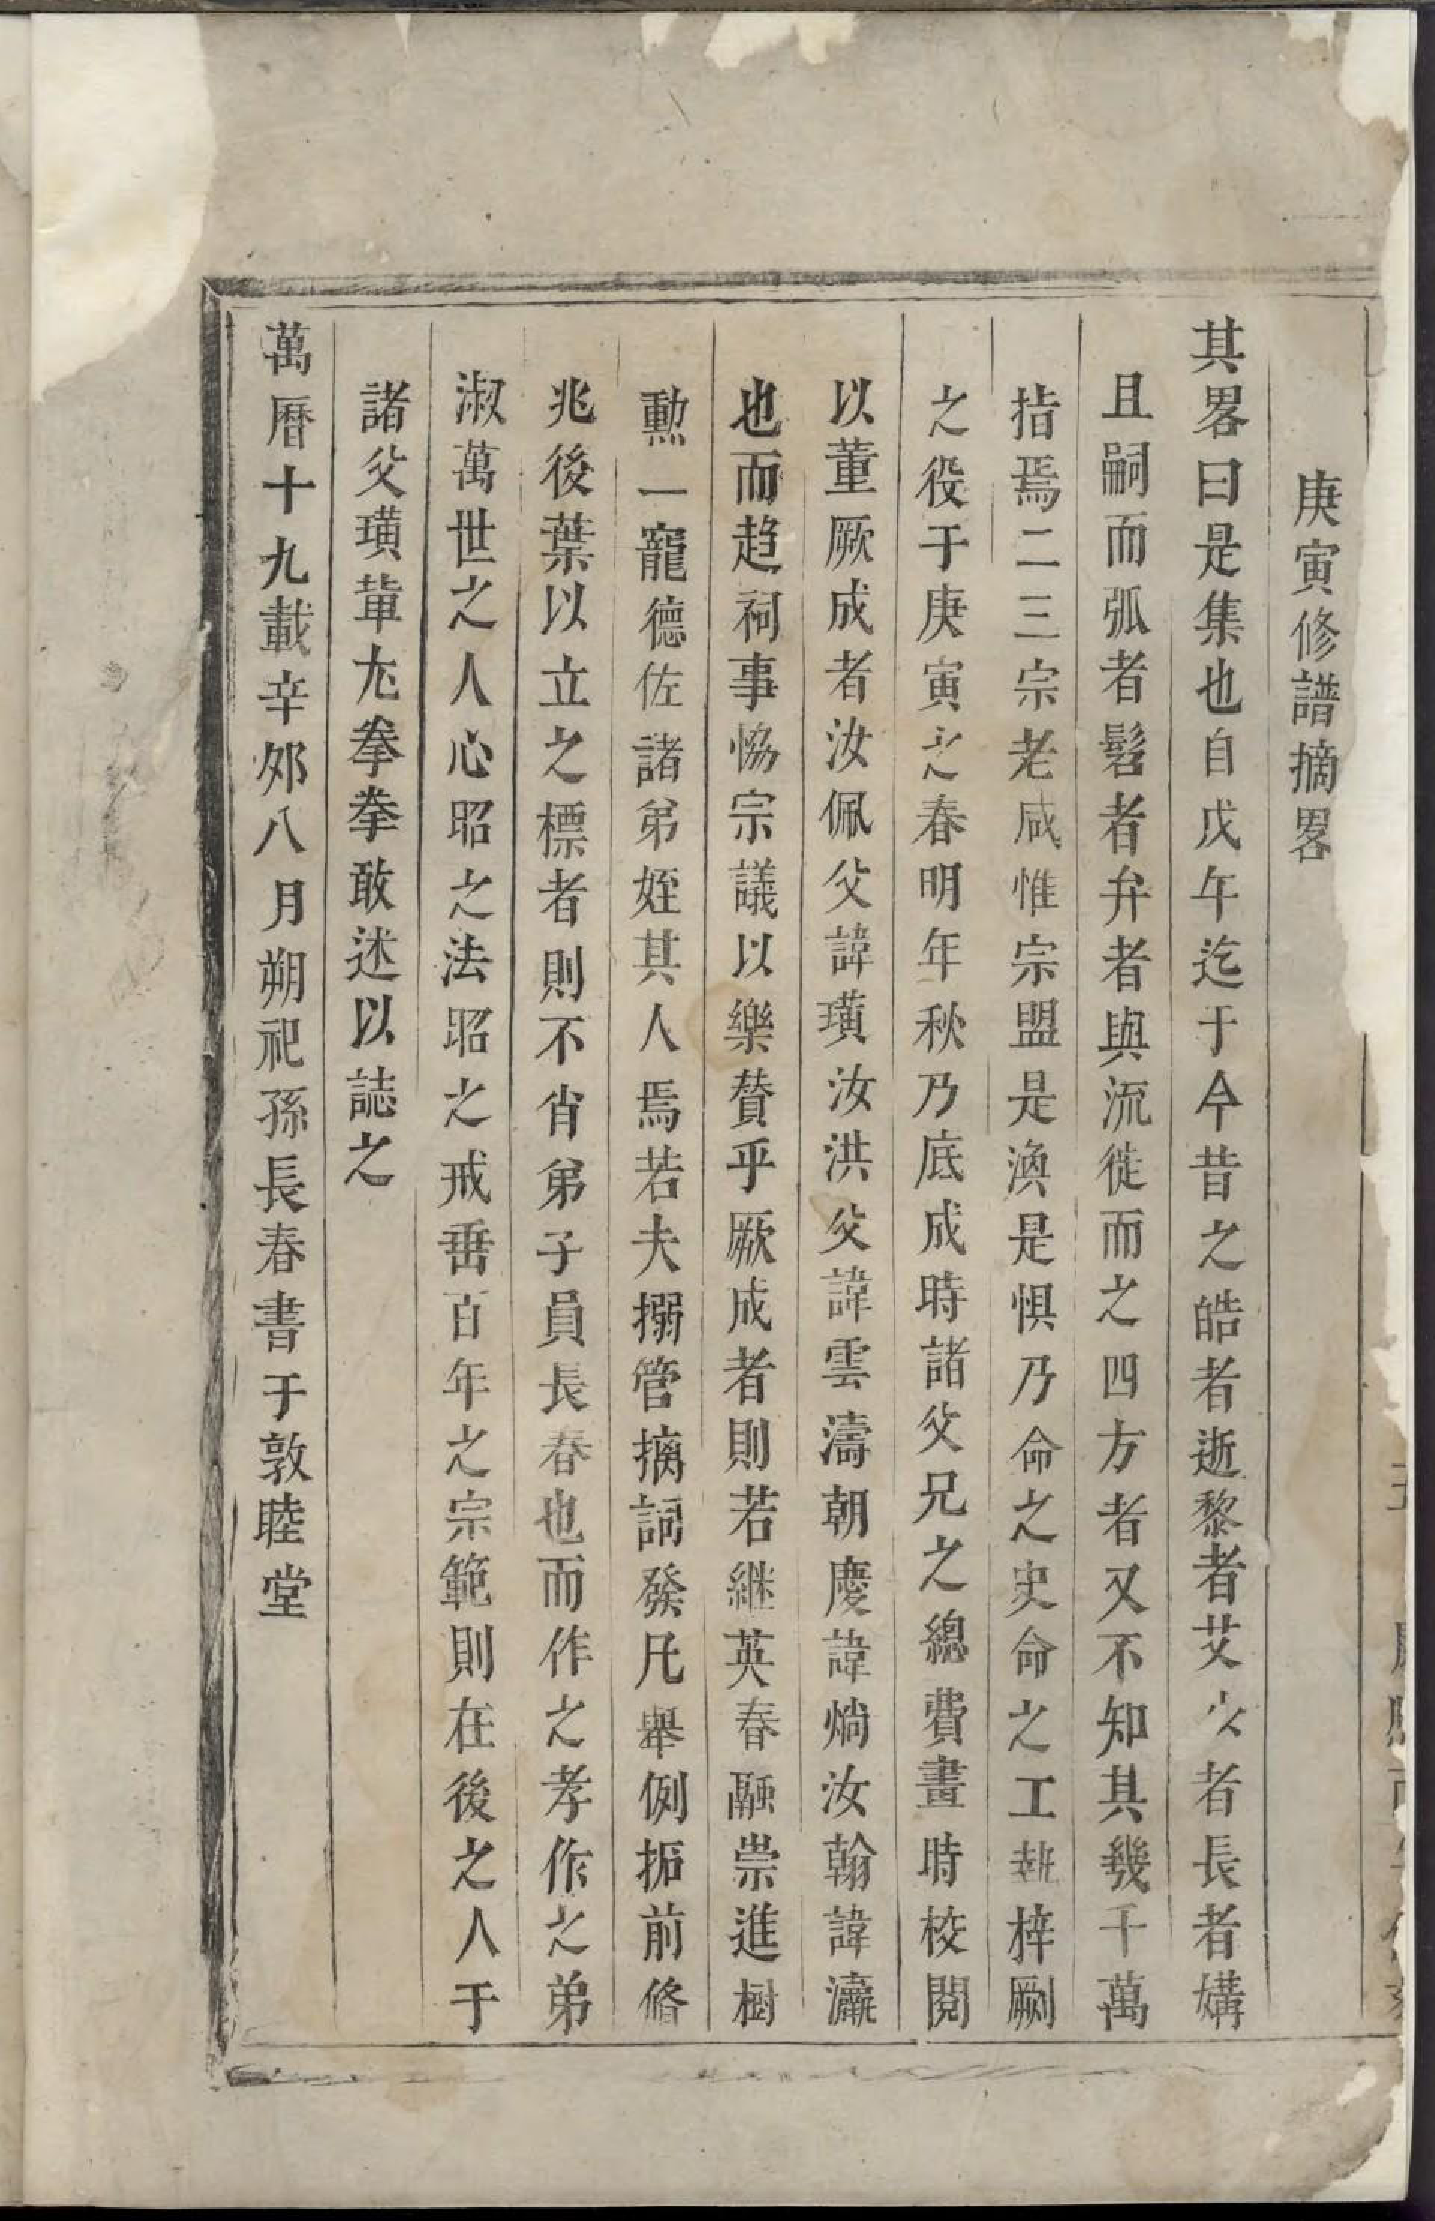 庚寅修譜摘畧
其畧曰是集也自戊午迄于今昔之皓者逝黎者艾少者長者媾
且嗣而弧者髫者弁者與流徙而之四方者又不知其幾千萬
指焉二三宗老咸惟宗盟是渙是惧乃命之史命之工執梓劂
之役于庚寅之春明年秋乃底成時諸父兄之總費畫時校閱
以董厥成者汝佩父諱璜汝洪父諱雲濤朝慶諱熵汝翰諱瀛
也而趋祠事恊宗議以樂賛乎厥成者則若継英春融崇進樹
勲一寵德佐諸弟姪其人焉若夫搦管摛詞發凡舉例拓前脩
兆後葉以立之標者則不肖弟子員長春也而作之孝作之弟
淑萬世之人心昭之法昭之戒垂百年之宗範則在後之人于
諸父璜軰尤拳拳敢述以誌之
萬曆十九載辛夘八月朔祀孫長春書于敦睦堂